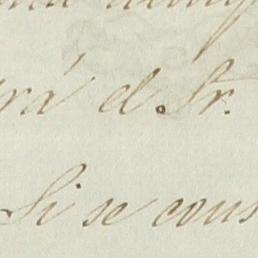 rá el Sr.
Si se cons